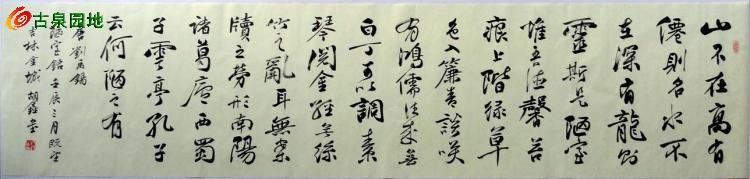 古泉园地
山不在高有
僊則名水不
在深有龍則
靈斯是陋室
惟吾德馨苔
痕上階綠草
色入簾青談咲
有鴻儒往來無
白丁可以調素
琴閱金經無絲
竹之亂耳無案
牘之勞形南陽
諸葛廬西蜀
子雲亭孔子
云何陋之有
唐劉禹錫
陋室銘壬辰三月既望
吉林金城胡